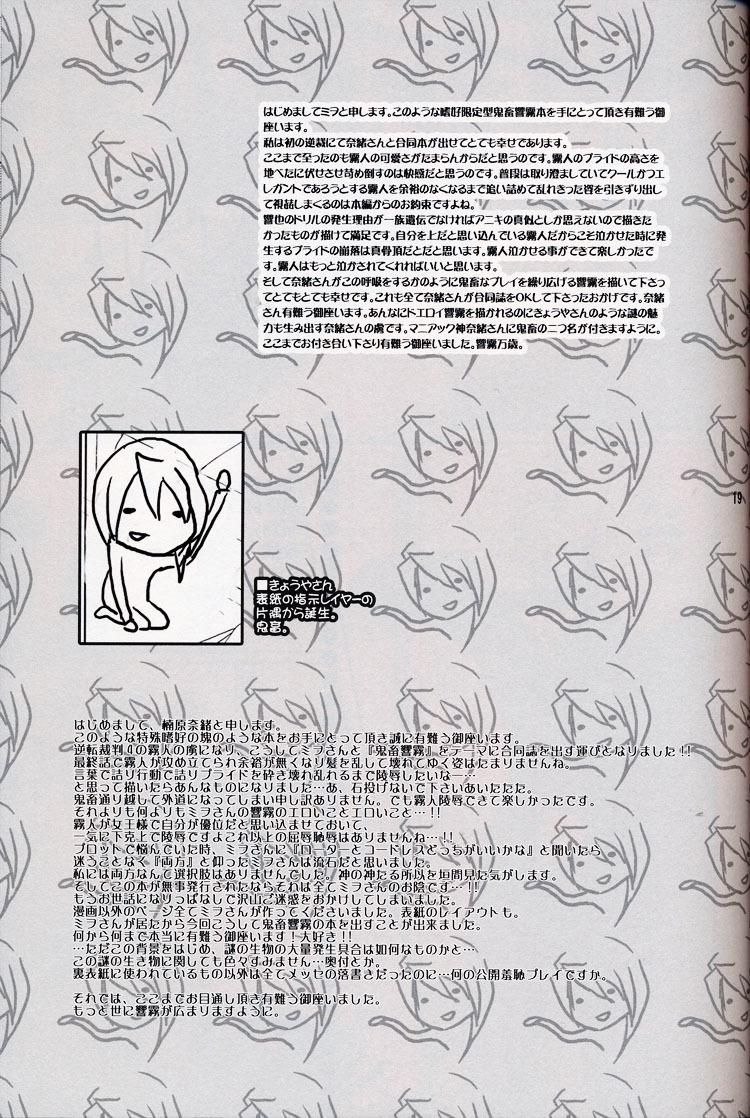 はじめましてミヲと申します。このような嗜好限定型鬼畜響霧本を手にとって頂き有難う御
座います。
私は初の逆裁にて奈緒さんと合同本が出せてとても幸せであります。
ここまで至ったのも霧人の可愛さがたまらんからだと思うのです。霧人のプライドの高さを
地べたに伏せさせ苛め倒すのは快感だと思うのです。普段は取り澄ましていてクールかつエ
レガントであろうとする霧人を余裕のなくなるまで追い詰めて乱れきった姿を引きずり出し
て視詰しまくるのは本編からのお約束ですよね。
響也のドリルの発生理由が一族遺伝でなければアニキの真似としか思えないので描きた
かったものが描けて満足です。自分を上だと思い込んでいる霧人だからこそ泣かせた時に発
生するプライドの崩落は真骨頂だとだと思います。霧人泣かせる事ができて楽しかったで
す。霧人はもっと泣かされてくれればいいと思います。
そして奈緒さんがこの呼吸をするかのように鬼畜なプレイを繰り広げる響霧を描いて下さっ
てとてもとても幸せです。これも全て奈緒さんが合同誌をOKして下さったおかげです。奈緒
さん有難う御座います。あんなにドエロイ響霧を描かれるのにきょうやさんのような謎の魅
力も生み出す奈緒さんの虜です。マニアック神奈緒さんに鬼畜の二つ名が付きますように。
ここまでお付き合い下さり有難う御座いました。響霧万歳。
19
■きょうやさん
表紙の指示レイヤーの
片隅から誕生。
鬼畜。
はじめまして、楠原奈緒と申します。
このような特殊嗜好の塊のような本をお手にとって頂き誠に有難う御座います。
逆転裁判4の霧人の虜になり、こうしてミヲさんと『鬼畜響霧』をテーマに合同誌を出す運びとなりました!!
最終話で霧人が攻め立てられ余裕が無くなり髪を乱して壊れてゆく姿はたまりませんね。
言葉で詰り行動で詰りプライドを砕き壊れ乱れるまで陵辱したいな―…
と思って描いたらあんなものになりました…あ、石投げないで下さいあいたたた。
鬼畜通り越して外道になってしまい申し訳ありません。でも霧人陵辱できて楽しかったです。
それよりも何よりもミヲさんの響霧のエロいことエロいこと…!!
霧人が女王様で自分が優位だと思い込ませておいて、
一気に下克上で陵辱ですよこれ以上の屈辱恥辱はありませんね…!!
プロットで悩んでいた時、ミヲさんに『ローターとコードレスどっちがいいかな』と聞いたら
迷うことなく『両方』と仰ったミヲさんは流石だと思いました。
私には両方なんて選択肢はありませんでした。神の神たる所以を垣間見た気がします。
そしてこの本が無事発行されたならそれは全てミヲさんのお陰です…!!
もうお世話になりっぱなしで沢山ご迷惑をおかけしてしまいました。
漫画以外のページ全てミヲさんが作ってくださいました。表紙のレイアウトも。
ミヲさんが居たから今回こうして鬼畜響霧の本を出すことが出来ました。
何から何まで本当に有難う御座います!大好き!!
…ただこの背景をはじめ、謎の生物の大量発生具合は如何なものかと…
この謎の生き物に関しても色々すみません…奥付とか。
裏表紙に使われているもの以外は全てメッセの落書きだったのに…何の公開羞恥プレイですか。
それでは、ここまでお目通し頂き有難う御座いました。
もっと世に響霧が広まりますように。